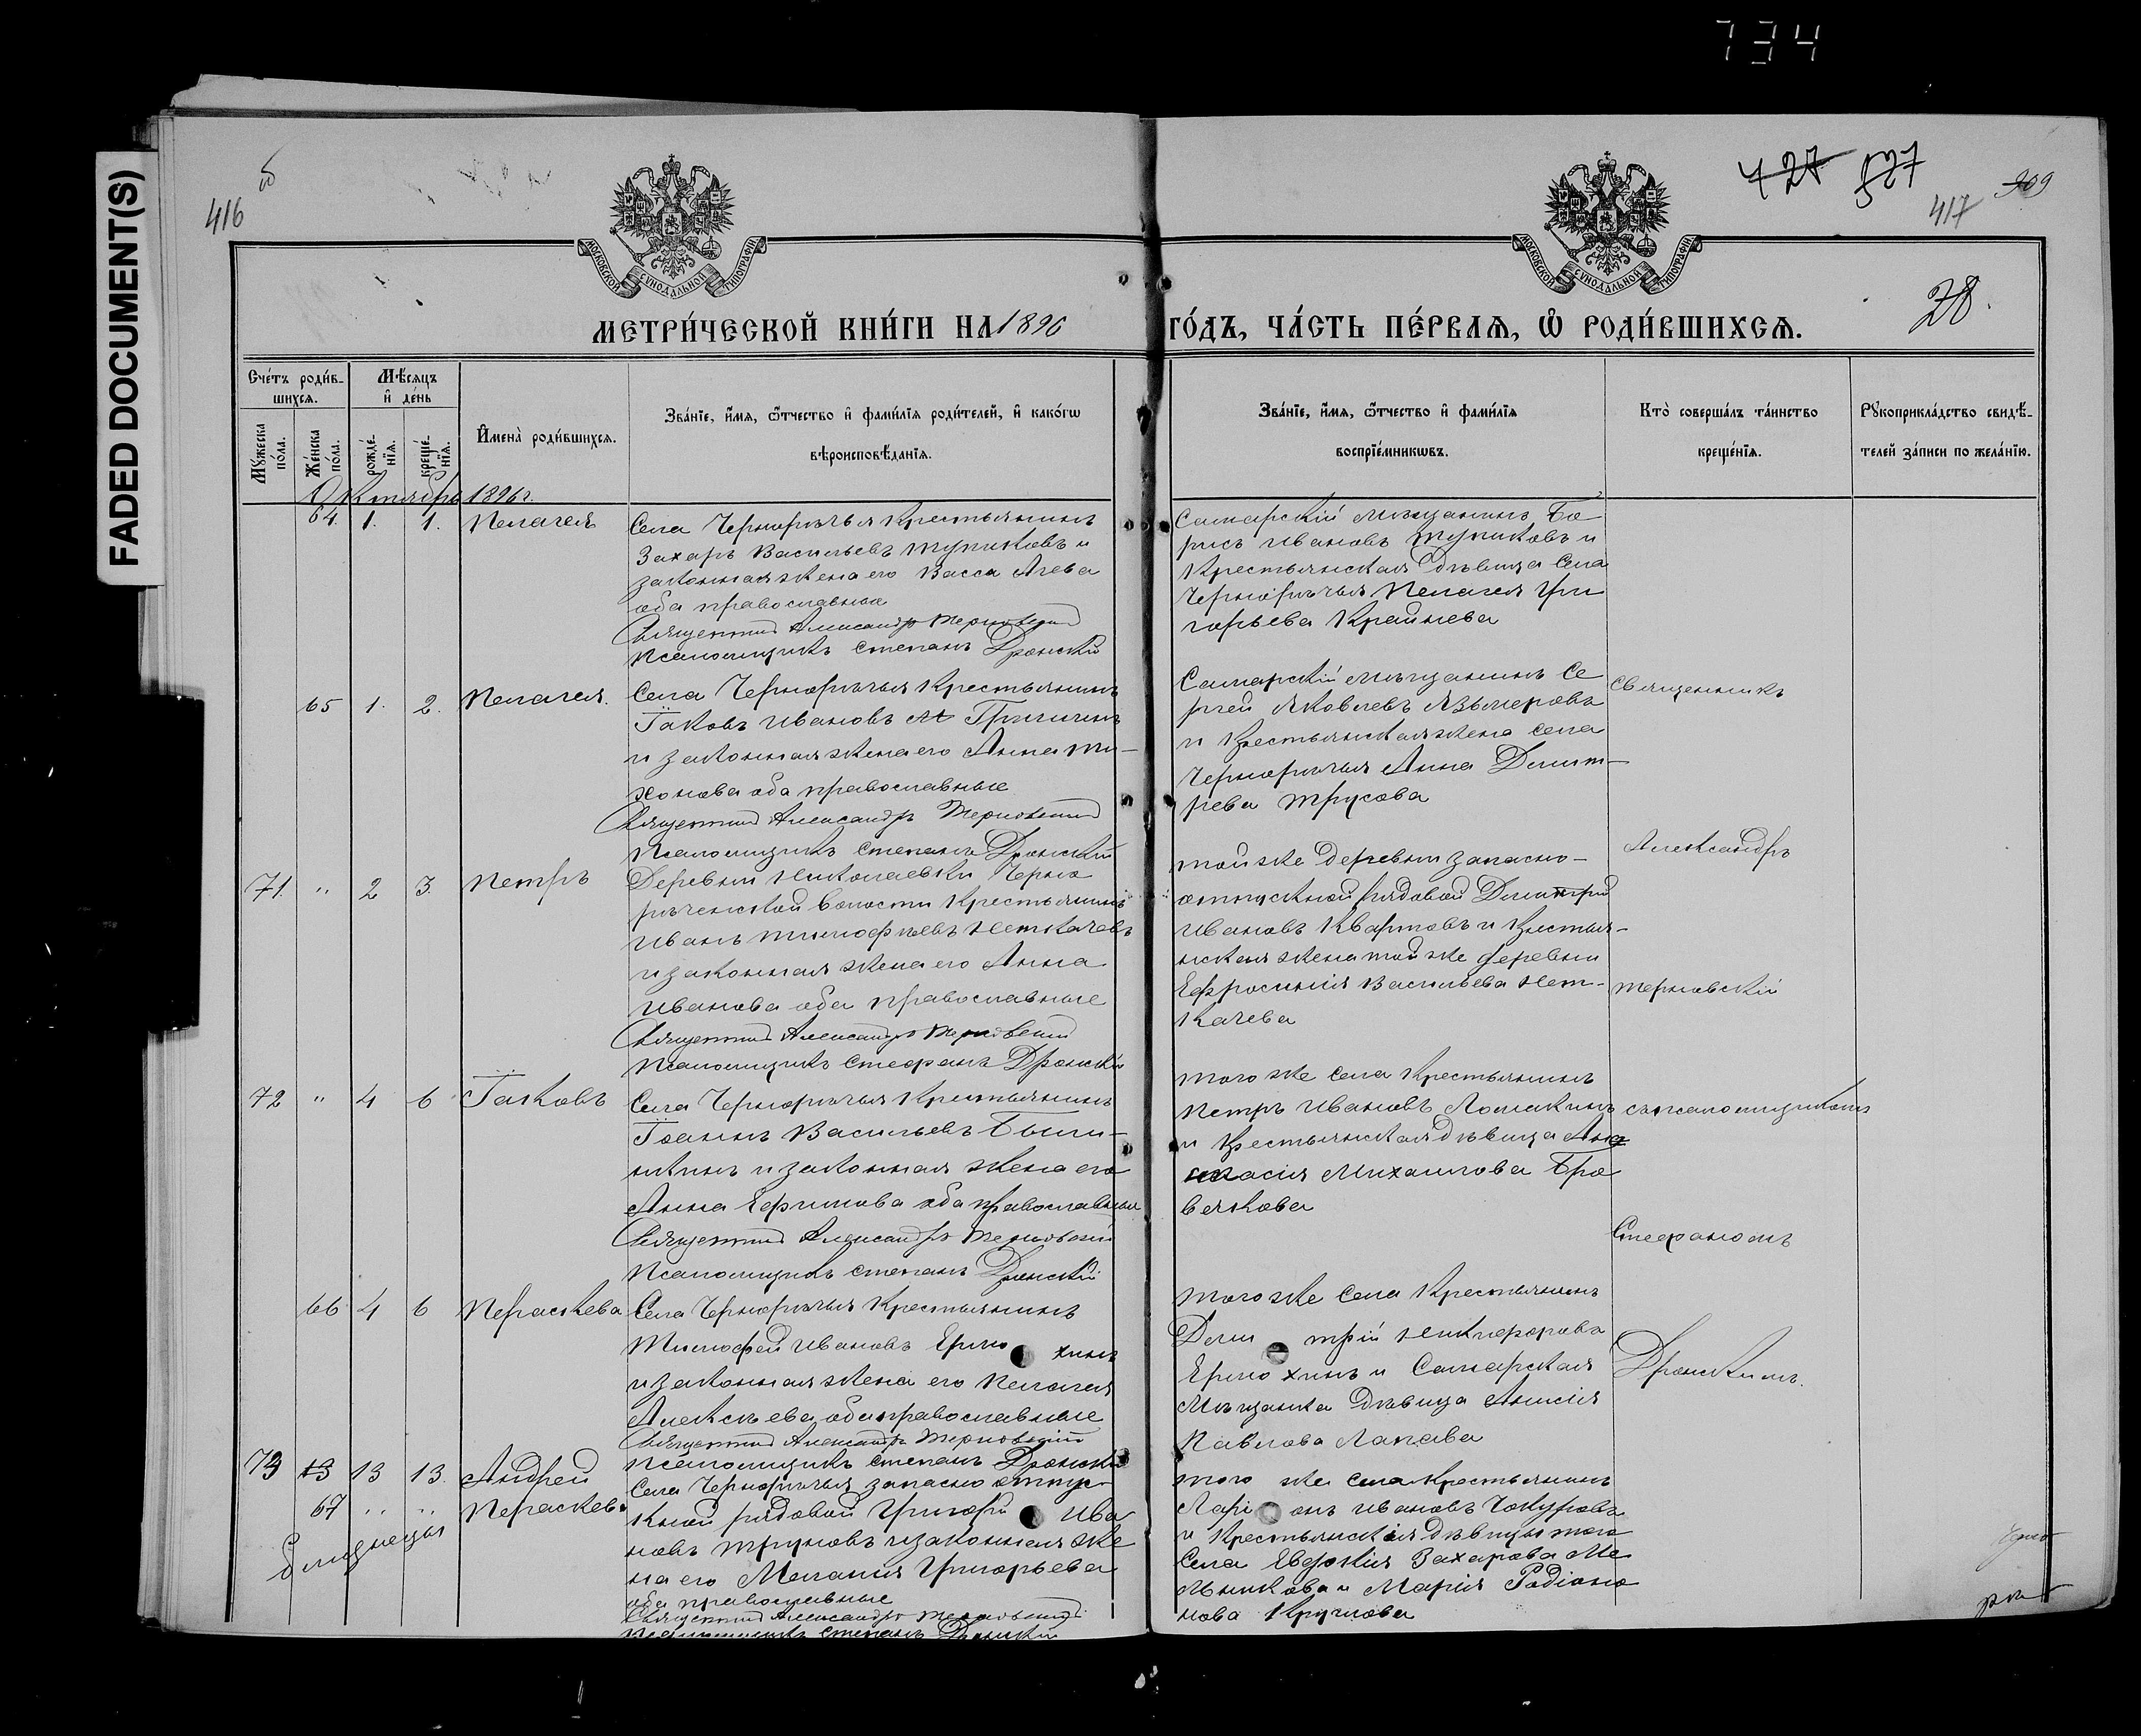 734
FADED DOCUMENT(S)
416
427 527
417
309
28.
МОСКОВСКОЙ СѴНОДАЛЬНОЙ ТИПОГРАФІИ
МОСКОВСКОЙ СѴНОДАЛЬНОЙ ТИПОГРАФІИ
МЕТРИ́ЧЕСКОЙ КНИ́ГИ НА 1896
ГО́ДЪ, ЧА́СТЬ ПЕ́РВАѦ, Ѡ РОДИ́ВШИХСѦ.
Сче́тъ роди́в-
шихсѧ.
Мѣ́сѧцъ
и҆ де́нь
Мꙋ́жеска
по́ла.
Же́нска
по́ла.
рожде́-
нїѧ.
креще́-
нїѧ.
И҆мена̀ роди́вшихсѧ.
Зва́нїе, и҆́мѧ, ѻ҆́тчество и҆ фами́лїѧ роди́телей, и҆ како́гѡ
вѣроисповѣ́данїѧ.
Зва́нїе, и҆́мѧ, ѻ҆́тчество и҆ фами́лїѧ
воспрїе́мникѡвъ.
Кто̀ соверша́лъ та́инство
креще́нїѧ.
Рꙋкоприкла́дство свидѣ́-
телей за́писи по жела́нїю.
Октябрь 1896 г.
64. 1. 1. Пелагея
Села Чернорѣчья крестьянинъ
Захаръ Васильевъ Тупиковъ и
законная жена его Васса Агева
оба православные
Священникъ Александръ Терновскій
Псаломщикъ Степанъ Дронскій
Самарскій мѣщанинъ Бо-
рисъ Ивановъ Тупиковъ и
крестьянская дѣвица села
Чернорѣчья Пелагея Гри
горьева Крайнева
65 1. 2. Пелагея.
Села Чернорѣчья крестьянинъ
Іаковъ Ивановъ Гришинъ
и законная жена его Анна Ти-
хонова оба православные
Священникъ Александръ Терновскій
Псаломщикъ Степанъ Дронскій
Самарскій мѣщанинъ Се
ргей Яковлевъ Язымеровъ
и крестьянская жена села
Чернорѣчья Анна Димит-
рева Трусова
71. " 2 3. Петръ
Деревни Николаевки Черно
рѣченской волости крестьянинъ
Иванъ Тимофѣевъ Неткачевъ
и законная жена его Анна
Иванова оба православные
Священникъ Александръ Терновскій
Псаломщикъ Стефанъ Дронскій
той же деревни запасно-
отпускной рядовой Димитрій
Ивановъ Квартовъ и крестья-
нская жена той же деревни
Ефросинія Васильева Нет-
качева
72 " 4 6 Іаковъ
Села Чернорѣчья крестьянинъ
Іоаннъ Васильевъ Были-
нкинъ и законная жена его
Анна Ефимова оба православные
Священникъ Александръ Терновскій
Псаломщикъ Степанъ Дронскій
того же села крестьянинъ
Петръ Ивановъ Ломакинъ
и крестьянская дѣвица Ана
стасія Михаилова Бро
вячкова
66 4 6 Параскева
Села Чернорѣчья крестьянинъ
Тимофей Ивановъ Ермо хинъ
и законная жена его Пелагея
Алексѣева оба православные
Священникъ Александръ Терновскій
Псаломщикъ Степанъ Дронскій
того же села крестьянинъ
Дими трій Никифоровъ
Ермо хинъ и Самарская
мѣщанка дѣвица Анисія
Павлова Лапаева
73 13 13 13. Андрей
67 " " Параскева
близнецы
Села Чернорѣчья запасно отпус-
кной рядовой Григорій Ива
новъ Труновъ и законная же
на его Меланія Григорьева
оба православные
Священникъ Александръ Терновскій
Псаломщикъ Степанъ Дронскій
того же села крестьянинъ
Лари онъ Ивановъ Чокуровъ
и крестьянскія дѣвицы того
села Евдокія Захарова Ме
льникова и Марія Родіоно
нова Круглова
Священникъ
Александръ
Терновскій
съ псаломщикомъ
Стефаномъ
Дронскимъ.